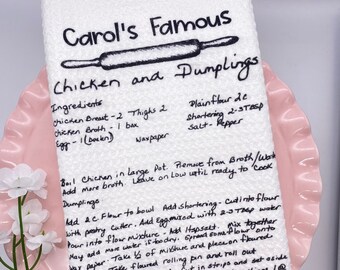 Carol's Famous
Chicken and Dumplings
Ingredients
Chicken Breast - 2 Thighs 2 Plain flour 2c
Chicken Broth - 1 box Shortening 2-3 TBSP
Egg - 1 Waxpaper Salt - Pepper
Boil Chicken in large Pot. Remove from Broth
Add more broth. Leave on Low until ready to Cook
Dumplings
Add 2C Flour to bowl. Add Shortening - Cut into flour
with pastry cutter. Add Egg mixed with 2-3 TBSP water
Pour into flour mixture. Mix together
May add more water if too dry. Spread some flour onto
wax paper. Take 1/2 of mixture and place on floured
Take floured rolling pin and roll out
in strips and set aside